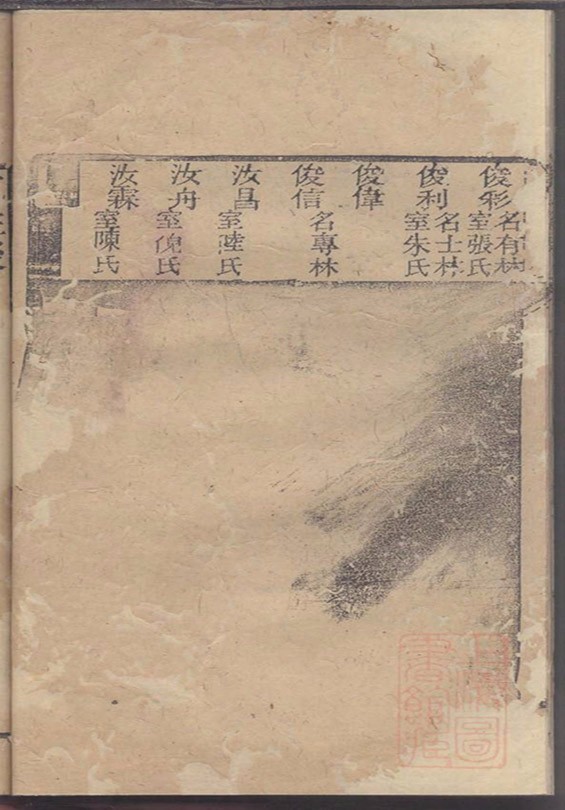 俊彩 名有林 室張氏
俊利 名士林 室朱氏
俊偉
俊信 名專林
汝昌 室陸氏
汝舟 室倪氏
汝霖 室陳氏